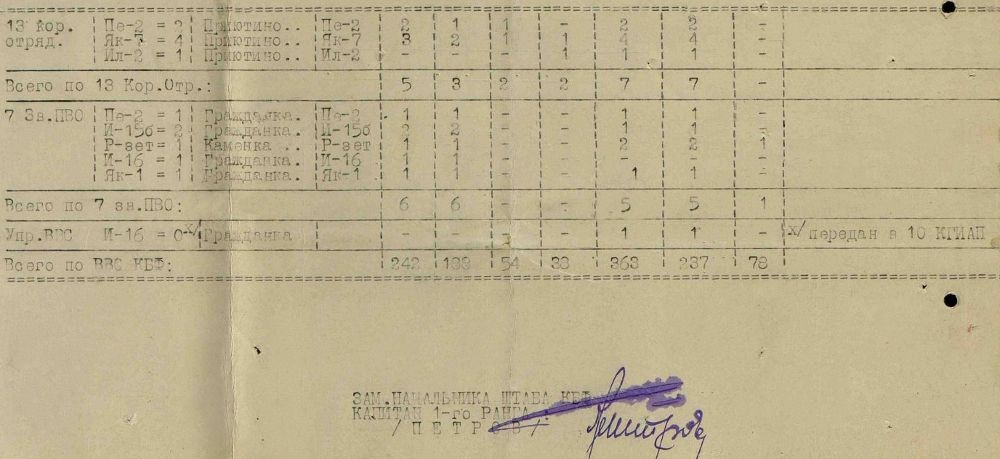 13 кор. Пе-2 = 2 Приютино.. Пе-2 2 1 1 - 2 2 -
отряд. Як-7 = 4 Приютино.. Як-7 3 2 1 1 4 4 -
Ил-2 = 1 Приютино.. Ил-2 - - - 1 1 1 -
Всего по 13 Кор.Отр.: 5 3 2 2 7 7 -
7 Зв.ПВО Пе-2 = 1 Гражданка. Пе-2 1 1 - - 1 1 -
И-15б = 2 Гражданка. И-15б 2 2 - - 1 1 -
Р-зет = 1 Каменка .. Р-зет 1 1 - - 2 2 1
И-16 = 1 Гражданка. И-16 1 1 - - - - -
Як-1 = 1 Гражданка. Як-1 1 1 - - 1 1 -
Всего по 7 зв.ПВО: 6 6 - - 5 5 1
Упр.ВВС И-16 = 0 х/ Гражданка - - - - 1 1 - х/ передан в 10 КГИАП
Всего по ВВС КБФ: 242 188 54 38 363 237 78
ЗАМ.НАЧАЛЬНИКА ШТАБА КБФ
КАПИТАН 1-го РАНГА
/ ПЕТРОВ /